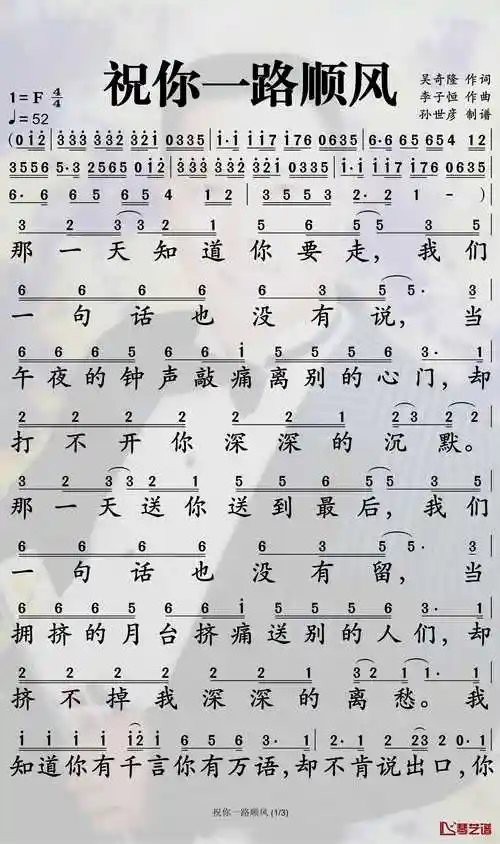 祝你一路顺风
吴奇隆 作词
李子恒 作曲
孙世彦 制谱
1=F 4/4
♩=52
(0i2 333 332 321 0335 i·i ii7 i76 0635 i·i ii7 i76 0635
3556 5·3 2565 0123 333 332 321 0335 i·i ii7 i76 0635
6· 6 65 65 4 12 355 53 2·2 1 - )
3 2 3 3 2 1 5 6 5 5 3 5
那一天知道你要走,我们
6 6 6 6 6 3 5 5· 3
一句话也没有说,当
6 6 6 5 6 6 i 5 5 5 6 3· 1
午夜的钟声敲痛离别的心门,却
2 2 2 2 2 2 1 2 3 2 2
打不开你深深的沉默。
3 2 3 3 2 1 5 6 5 5 3 5
那一天送你送到最后,我们
6 6 6 6 6 3 5 5· 3
一句话也没有留,当
6 6 6 5 6 6 i 5 5 5 6 3· 1
拥挤的月台挤痛送别的人们,却
2 2 2 2 2 2 1 3 2 1 1· 1
挤不掉我深深的离愁。我
i i i i i2 6 5 6 3· 1 2· 1 2 23 0· 1
知道你有千言你有万语,却不肯说出口,你
祝你一路顺风 (1/3)
琴艺谱